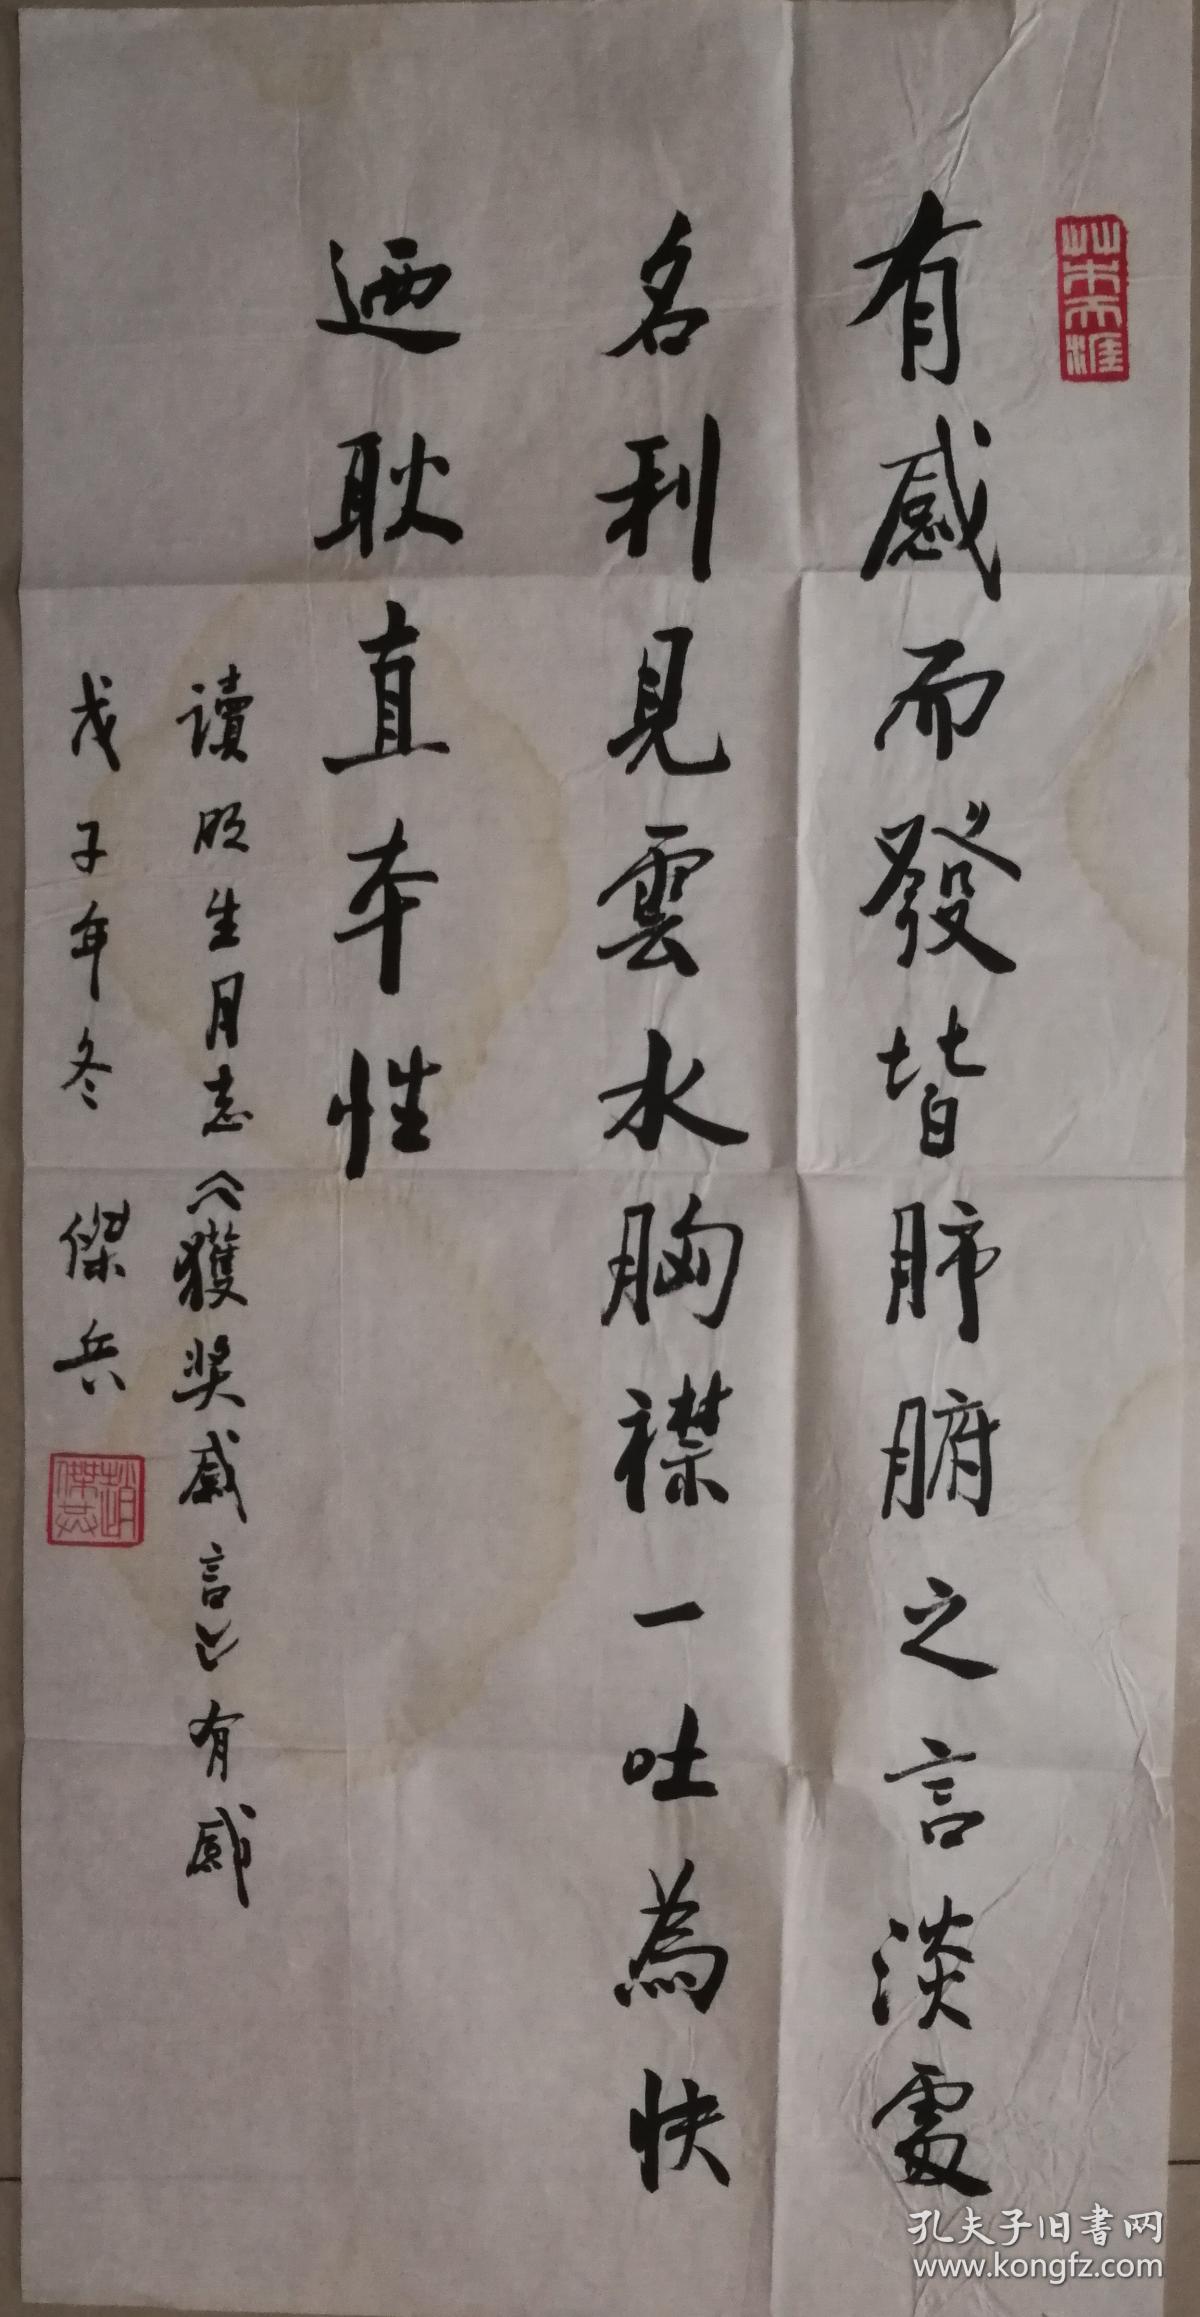 有感而發皆肺腑之言淡處
名利見雲水胸襟一吐為快
迺耿直本性
讀明生同志《獲奖感言》有感
戊子年冬 傑兵
孔夫子旧書网
www.kongfz.com